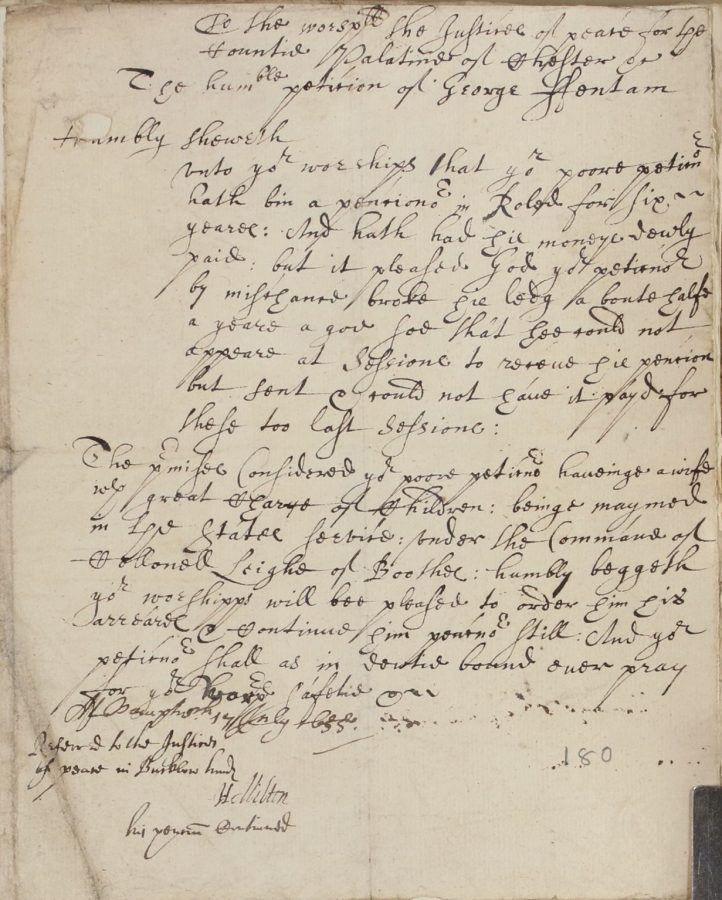 To the worspll the Justices of peace for the
Countie Palatine of Chester &c
The humble petition of George Ffentam
Humbly sheweth
unto yor worships that yor poore peticnor
hath bin a pencionor in Roled for six
yeares: And hath had his moneys dewly
paid: but it pleased God yor peticnor
by mischance broke his legg a boute halfe
a yeare a goe soe that hee could not
appeare at Sessions to receve his pencion
but sent & could not have it payd for
these too last Sessions:
The pmises Considered yor poore peticnor haveinge a wife
wth great Charge of Children: beinge maymed
in the States service: under the Command of
Collonell Leighe of Boothes: humbly beggeth
yor worshipps will bee pleased to order him his
arreares & Continue him pencnor still: And yor
peticnor shall as in dewtie bound ever pray
for yor worps safetie &c
At 17 July 1655
Referred to the Justices
of peace in Bucklow hund
his pencion Continued
180